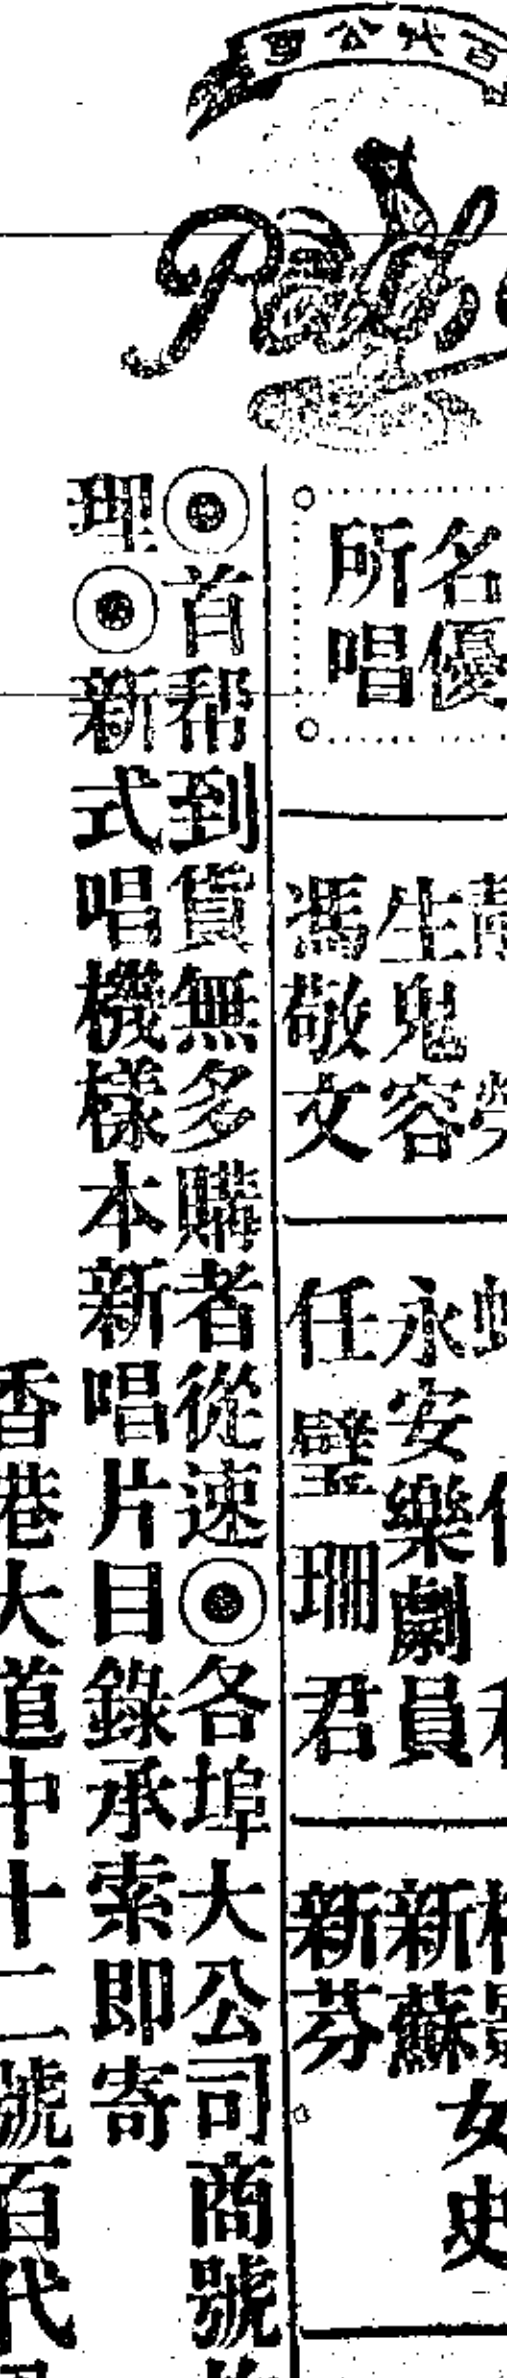 百代公司
Pathé
名優
所唱
生鬼容
馮敬文
永安樂劇員
任璧珊君
女史
新蘇
新芬
◎首帮到貨無多購者從速◎各埠大公司商號
理◎新式唱機樣本新唱片目錄承索即寄
香港大道中十二號百代